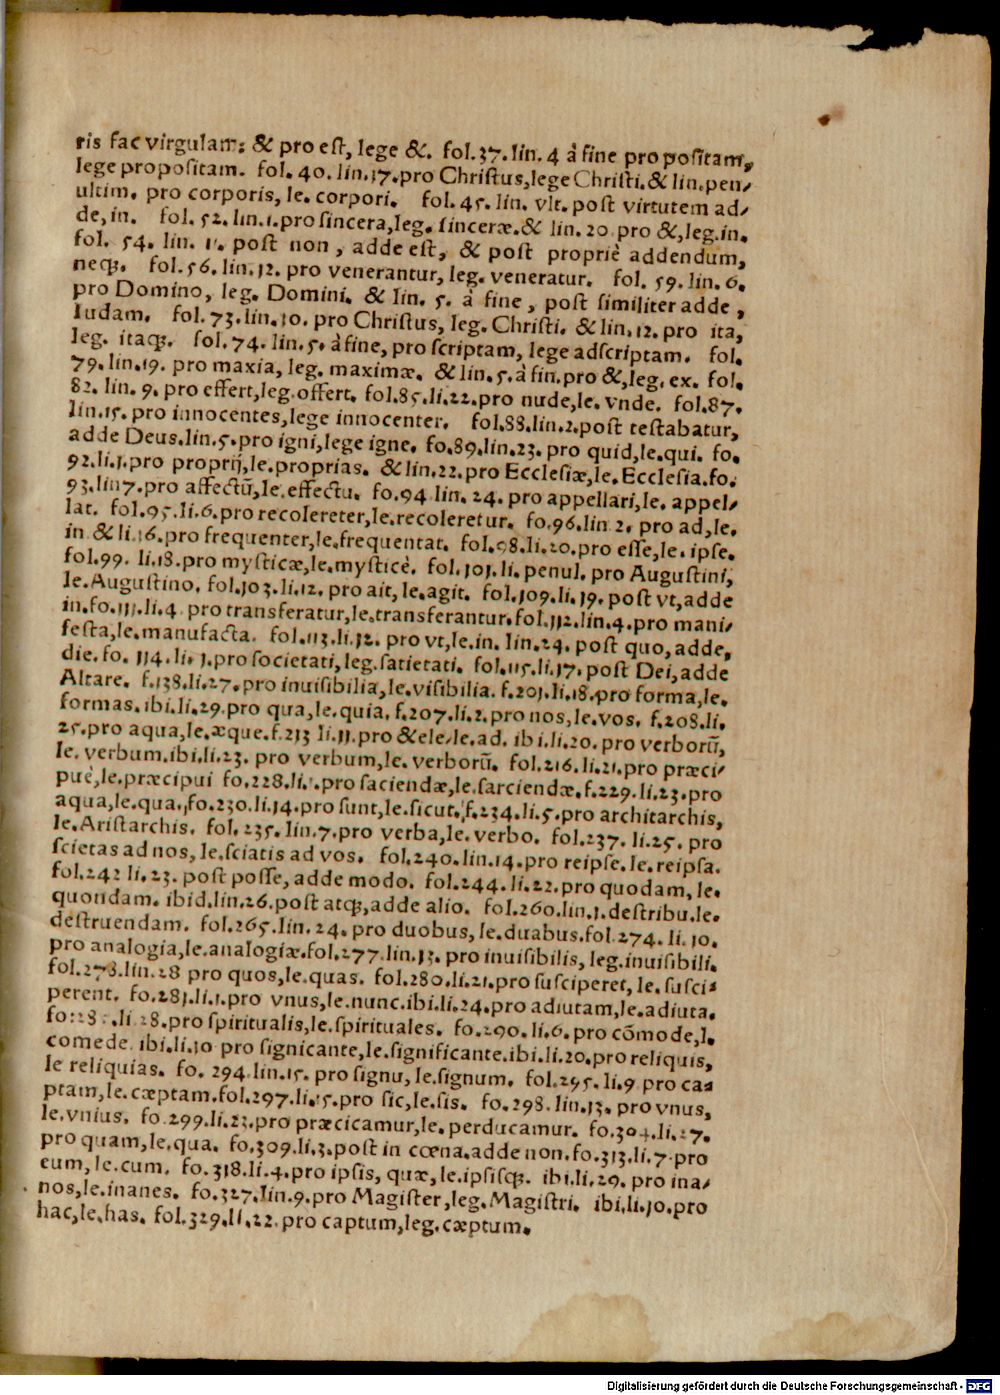 ris fac virgulam: & pro eſt, lege &. fol.37.lin. 4 à fine propoſitam,
lege propoſitam. fol. 40. lin.17.pro Chriſtus,lege Chriſti.& lin.pen-
ultim. pro corporis, le. corpori. fol. 45. lin. vlt. poſt virtutem ad-
de, in. fol. 52. lin.1.pro ſincera,leg. ſinceræ.& lin. 20 pro &,leg.in.
fol. 54. lin. 1. poſt non, adde eſt, & poſt propriè addendum,
neq́ꝫ. fol.56.lin.12. pro venerantur, leg. veneratur. fol. 59. lin. 6.
pro Domino, leg. Domini. & lin. 5. à fine, poſt ſimiliter adde,
Iudam. fol.73.lin.10. pro Chriſtus, leg. Chriſti. & lin.12. pro ita,
leg. itaqꝫ. fol.74.lin.5. à fine, pro ſcriptam, lege adſcriptam. fol.
79.lin.19. pro maxia, leg. maximæ. & lin.5.à fin.pro &,leg. ex. fol.
82. lin. 9. pro effert,leg.offert. fol.85.li.22.pro nude,le. vnde. fol.87.
lin.15. pro innocentes,lege innocenter. fol.88.lin.2.poſt teſtabatur,
adde Deus.lin.5.pro igni,lege igne. fo.89.lin.23. pro quid,le.qui. fo.
92.li.1.pro proprij,le.proprias. & lin.22.pro Eccleſiæ,le. Eccleſia.fo.
93.lin7.pro affectũ,le.effectu. fo.94 lin. 24. pro appellari,le. appel-
lat. fol.95.li.6.pro recolereter,le.recoleretur. fo.96.lin 2. pro ad,le.
in & li.16.pro frequenter,le.frequentat. fol.98.li.20.pro eſſe,le.ipſe.
fol.99. li.18.pro myſticæ,le.myſticè. fol.101.li. penul. pro Auguſtini,
le.Auguſtino. fol.103.li.12. pro ait, le.agit. fol.109.li.19. poſt vt,adde
in.fo.111.li.4. pro transferatur,le.transferantur.fol.112.lin.4.pro mani-
feſta,le.manufacta. fol.113.li.12. pro vt,le.in. lin.24. poſt quo, adde,
die. fo. 114. li. 1.pro ſocietati, leg.ſatietati. fol.115.li.17. poſt Dei,adde
Altare. f.138.li.27.pro inuiſibilia,le.viſibilia. f.201.li.18.pro forma,le.
formas. ibi.li.29.pro qua,le.quia. f.207.li.2.pro nos,le.vos. f.208.li.
25.pro aqua,le.æque.f.213 li.11.pro &ele,le.ad. ibi.li.20. pro verborũ,
le. verbum.ibi.li.23. pro verbum,le.verborũ. fol.216.li.21.pro præci-
puè,le.præcipui fo.228.li. .pro faciendæ,le.farciendæ.f.229.li.23.pro
aqua,le.qua.,fo.230.li.14.pro ſunt,le.ſicut. f.234.li.5.pro architarchis,
le.Ariſtarchis. fol. 235. lin.7. pro verba, le. verbo. fol.237. li.25. pro
ſcietas ad nos, le.ſciatis ad vos. fol.240.lin.14.pro reipſe.le.reipſa.
fol.242 li.23. poſt poſſe, adde modo. fol.244.li.22.pro quodam, le.
quondam. ibid.lin.26.poſt atqꝫ,adde alio. fol.260.lin.1.deſtribu.le.
deſtruendam. fol.265.lin. 24. pro duobus, le.duabus.fol.274. li. 10.
pro analogia,le.analogiæ.fol.277.lin.13. pro inuiſibilis, leg.inuiſibili.
fol.278.lin.28 pro quos,le.quas. fol.280.li.21.pro ſuſciperet, le. ſuſci-
perent. fo.281.li.1.pro vnus,le.nunc.ibi.li.24.pro adiutam,le.adiuta.
fo:28 .li 28.pro ſpiritualis,le.ſpirituales. fo.290.li.6.pro cõmode,l.
comede. ibi.li.10 pro ſignicante,le.ſignificante.ibi.li.20.pro reliquis,
le reliquias. fo. 294.lin.15. pro ſignu, le.ſignum. fol.295.li.9 pro ca-
ptam,le.cæptam.fol.297.li.15.pro ſic,le.ſis. fo.298.lin.13. pro vnus,
le.vnius. fo 299.li.23.pro præcicamur,le.perducamur. fo.304.li.27.
pro quam,le.qua. fo.309.li.3.poſt in cœna.adde non.fo.313.li.7.pro
eum, le.cum. fo.318.li.4.pro ipſis, quæ, le.ipſiſqꝫ. ibi.li.29. pro ina-
nos,le.inanes. fo.327.lin.9.pro Magiſter,leg.Magiſtri. ibi.li.10.pro
hac,le.has. fol.329.li.22.pro captum,leg.cæptum.
Digitalisierung gefördert durch die Deutsche Forschungsgemeinschaft - DFG